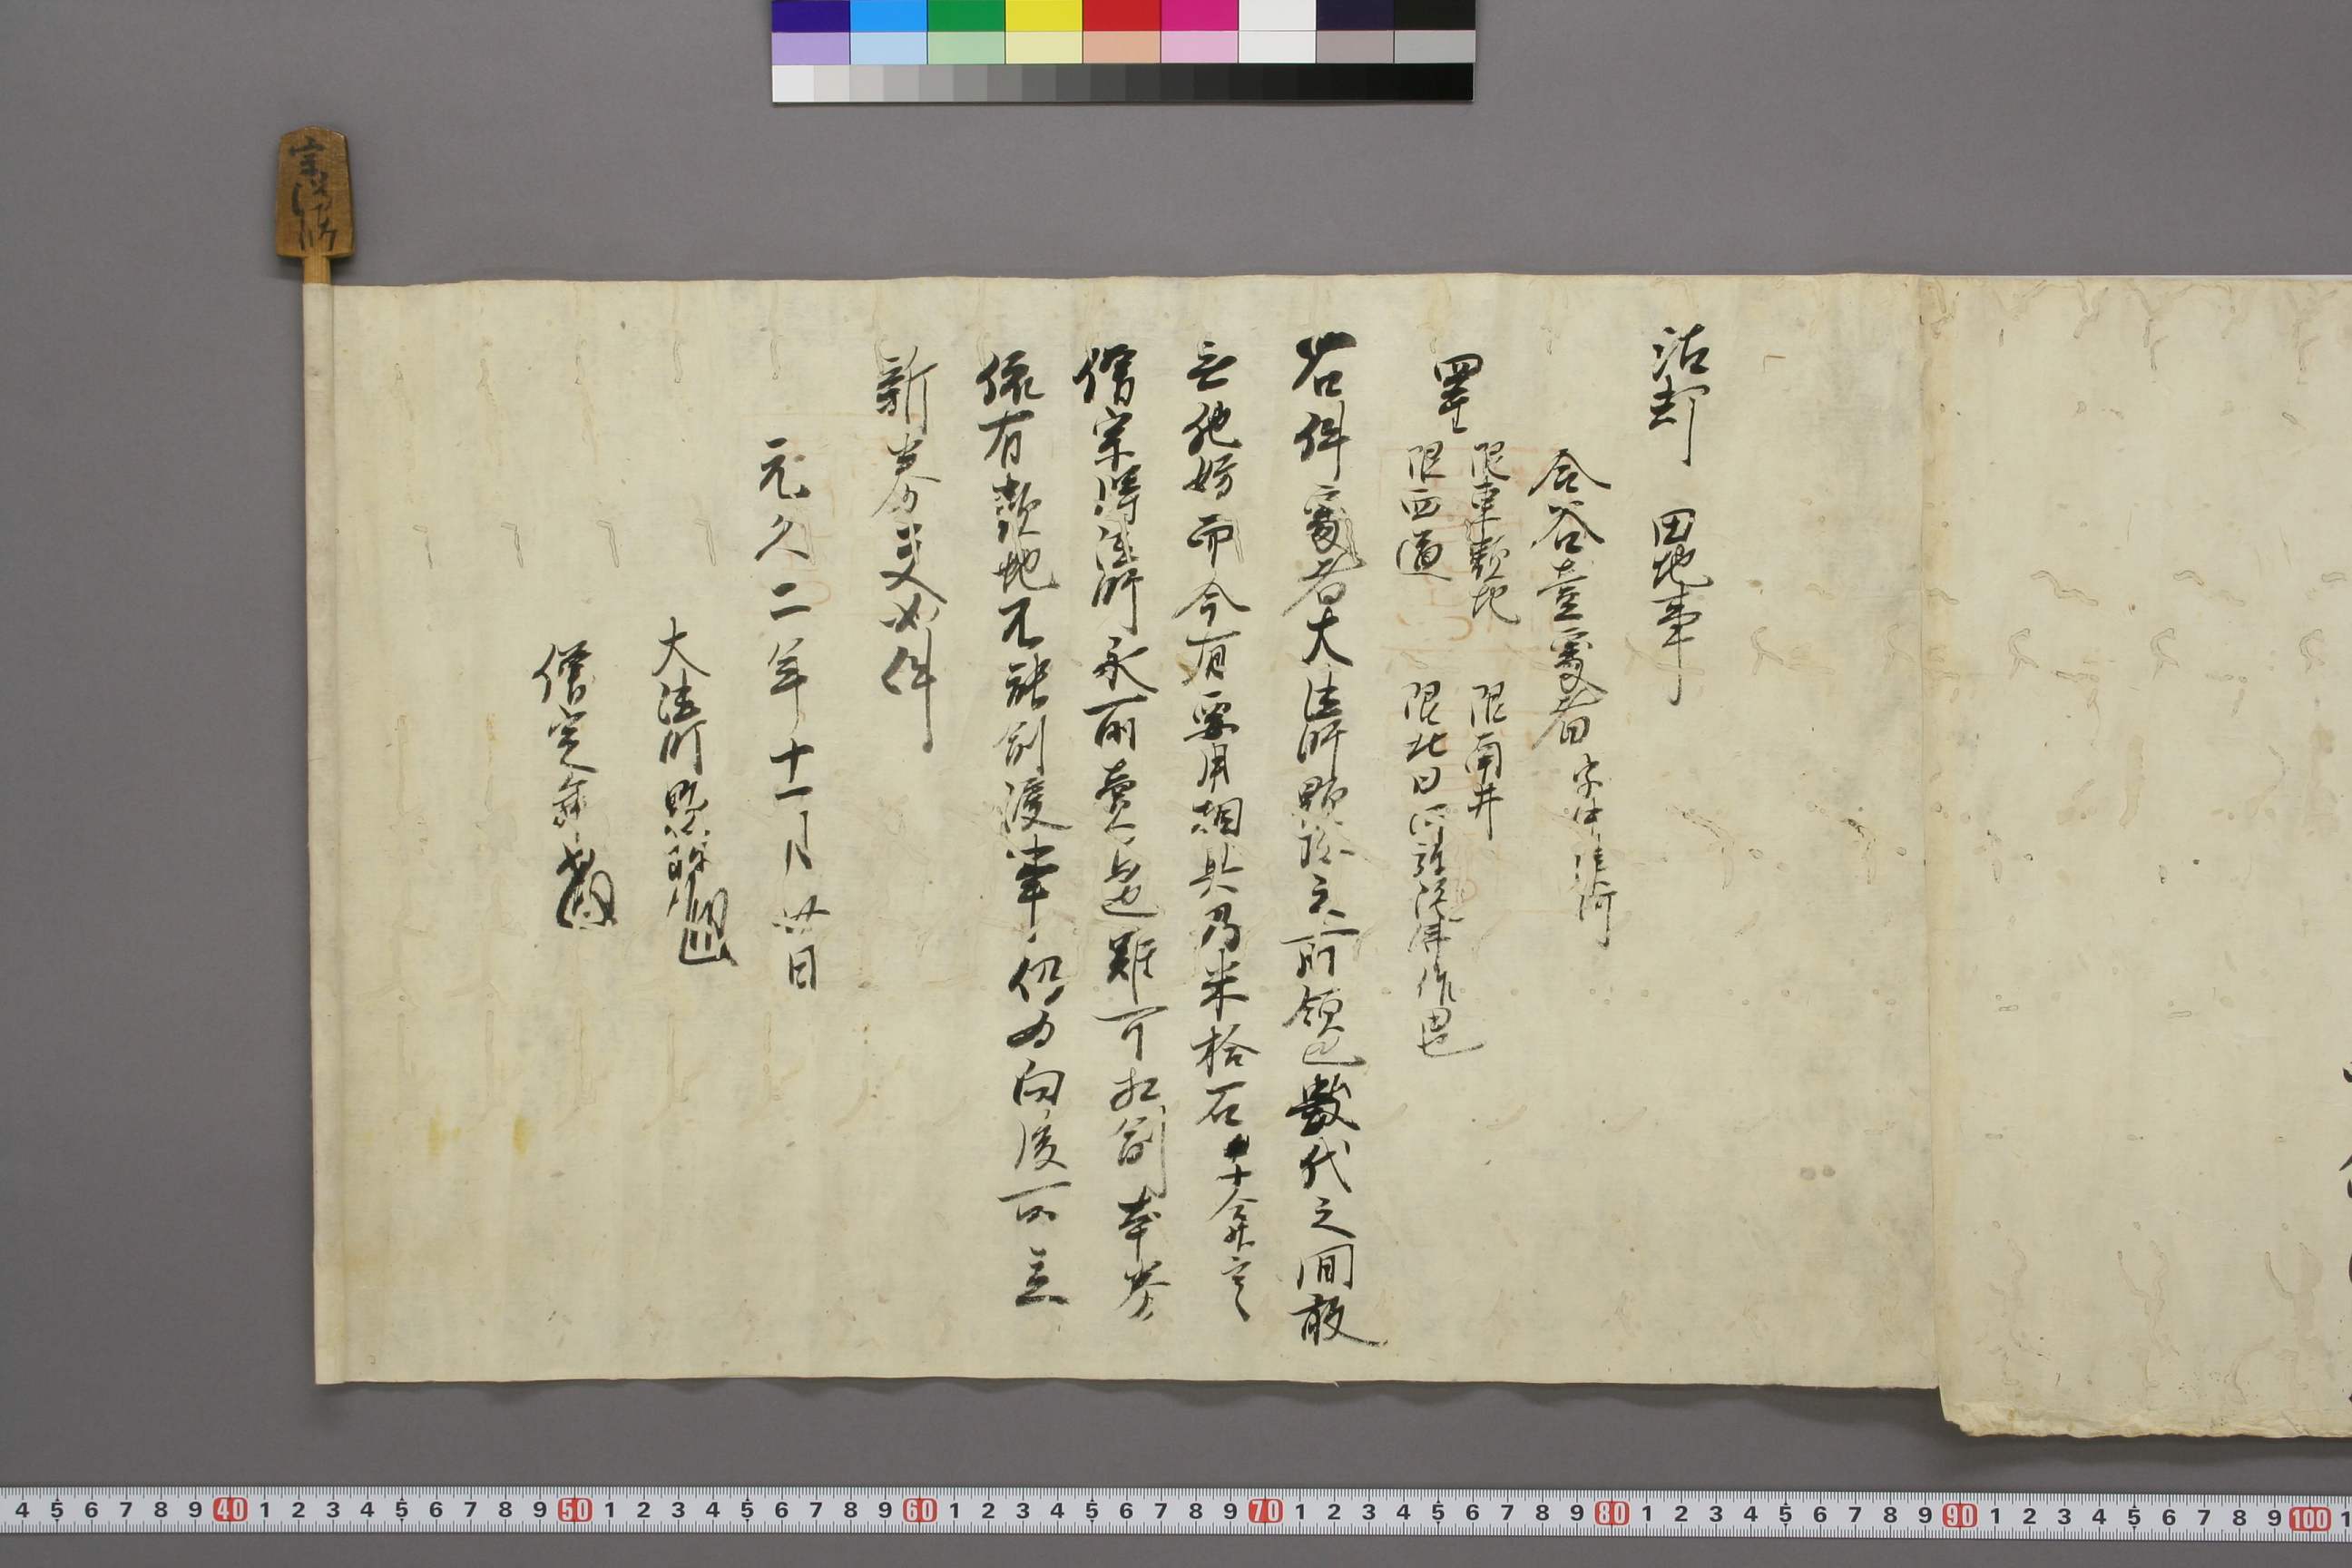 沽却　田地事
合　壹處者　字中津河
四至　限東類地　限南井
限西道　限北
右件處者大法師賢　之所領也數代之間敢
无他妨而今有要用相具乃米拾石　定
僧宗得法師永所賣与也雖可相副本券
依有類地不能副渡本仍為向後所立
新券文如件
元久二年十一月廿日
大法師賢
僧定
4 5 6 7 8 9 40 1 2 3 4 5 6 7 8 9 50 1 2 3 4 5 6 7 8 9 60 1 2 3 4 5 6 7 8 9 70 1 2 3 4 5 6 7 8 9 80 1 2 3 4 5 6 7 8 9 90 1 2 3 4 5 6 7 8 9 100 1